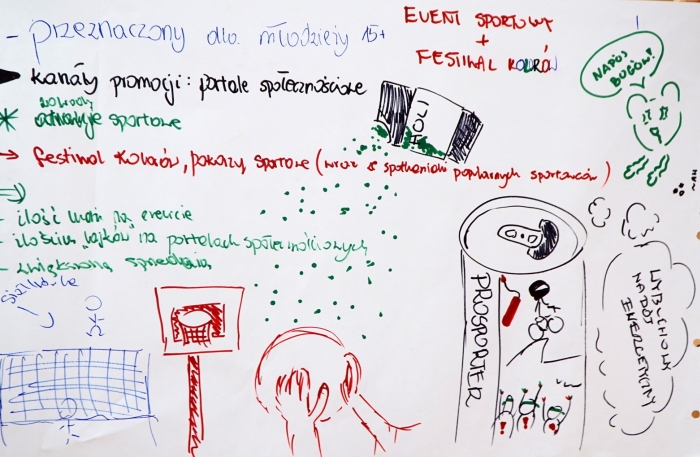 - przeznaczony dla młodzieży 15+
EVENT SPORTOWY
+
FESTIWAL KOLORÓW
kanały promocji: portale społecznościowe
zawody
sportowe
→ festiwal kolorów, pokazy, sportowe (wraz z spotkaniami popularnych sportowców)
- ilość ludzi na evencie
- ilością lajków na portalach społecznościowych
- zwiększona sprzedaż
siatkówka
HOLI
NAPÓJ
BOGÓW!
PROSPORTER
WYBUCHOWY
NAPÓJ
ENERGETYCZNY